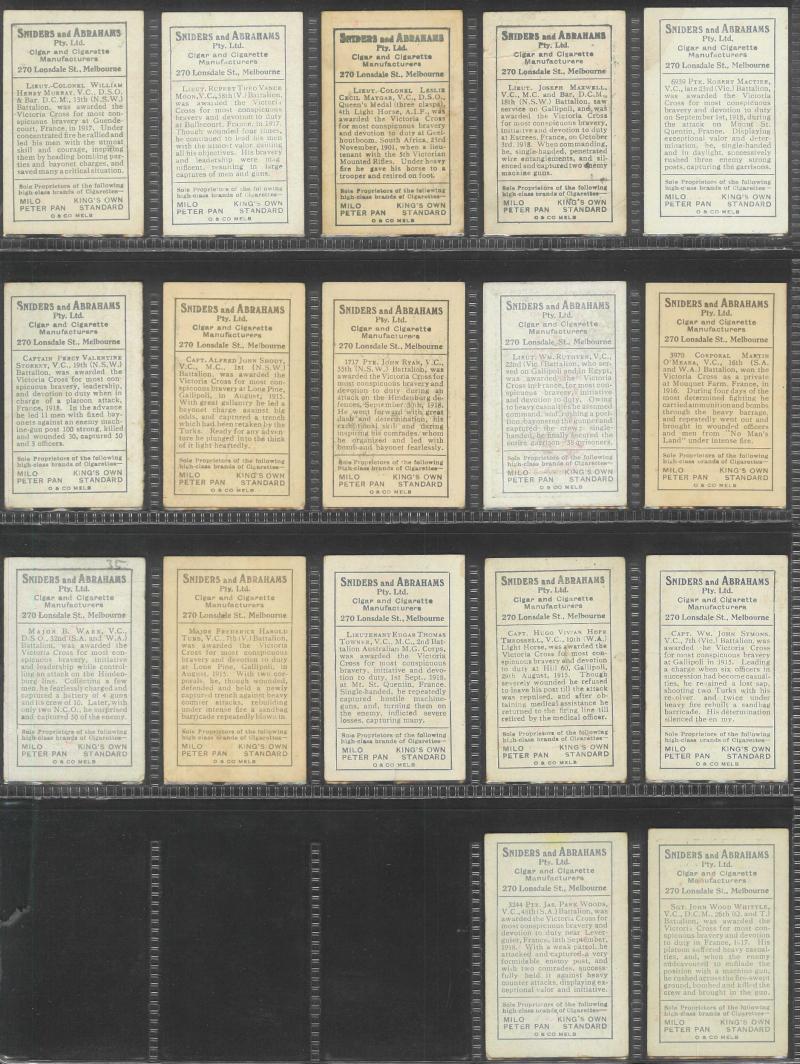 SNIDERS and ABRAHAMS
Pty. Ltd.
Cigar and Cigarette
Manufacturers
270 Lonsdale St., Melbourne
LIEUT.-COLONEL WILLIAM
HENRY MURRAY, V.C., D.S.O.
& Bar, D.C.M., 13th (N.S.W.)
Battalion, was awarded the
Victoria Cross for most con-
spicuous bravery at Guende-
court, France, in 1917. Under
concentrated fire he rallied and
led his men with the utmost
skill and courage, inspiring
them by heading bombing par-
ties and bayonet charges, and
saved many a critical situation.
Sole Proprietors of the following
high-class brands of Cigarettes—
MILO KING'S OWN
PETER PAN STANDARD
O & CO MELB
SNIDERS and ABRAHAMS
Pty. Ltd.
Cigar and Cigarette
Manufacturers
270 Lonsdale St., Melbourne
LIEUT. RUPERT THEO VANCE
MOON, V.C., 58th (V.) Battalion,
was awarded the Victoria
Cross for most conspicuous
bravery and devotion to duty
at Bullecourt, France, in 1917.
Though wounded four times,
he continued to lead his men
with the utmost valor, gaining
all his objectives. His bravery
and leadership were mag-
nificent, resulting in large
captures of men and guns.
Sole Proprietors of the following
high-class brands of Cigarettes—
MILO KING'S OWN
PETER PAN STANDARD
O & CO MELB
SNIDERS and ABRAHAMS
Pty. Ltd.
Cigar and Cigarette
Manufacturers
270 Lonsdale St., Melbourne
LIEUT.-COLONEL LESLIE
CECIL MAYGAR, V.C., D.S.O.,
Queen's Medal (three clasps),
4th Light Horse, A.I.F., was
awarded the Victoria Cross for
most conspicuous bravery and
devotion to duty at Geel-
houtboom, South Africa, 23rd
November, 1901, when a lieu-
tenant with the 5th Victorian
Mounted Rifles. Under heavy
fire he gave his horse to a
trooper and retired on foot.
Sole Proprietors of the following
high-class brands of Cigarettes—
MILO KING'S OWN
PETER PAN STANDARD
O & CO MELB
SNIDERS and ABRAHAMS
Pty. Ltd.
Cigar and Cigarette
Manufacturers
270 Lonsdale St., Melbourne
LIEUT. JOSEPH MAXWELL,
V.C., M.C. and Bar, D.C.M.,
18th (N.S.W.) Battalion, saw
service on Gallipoli, and was
awarded the Victoria Cross
for most conspicuous bravery,
initiative and devotion to duty
at Estrees, France, on October
3rd, 1918. When commanding,
he, single-handed, penetrated
wire entanglements, and sil-
enced and captured two enemy
machine guns.
Sole Proprietors of the following
high-class brands of Cigarettes—
MILO KING'S OWN
PETER PAN STANDARD
O & CO MELB
SNIDERS and ABRAHAMS
Pty. Ltd.
Cigar and Cigarette
Manufacturers
270 Lonsdale St., Melbourne
6939 PTE. ROBERT MACTIER,
V.C., late 23rd (Vic.) Battalion,
was awarded the Victoria
Cross for most conspicuous
bravery and devotion to duty
on September 1st, 1918, during
the attack on Mount St.
Quentin, France. Displaying
exceptional valor and deter-
mination, he, single-handed
and in daylight, successively
rushed three enemy strong
posts, capturing the garrisons.
Sole Proprietors of the following
high-class brands of Cigarettes—
MILO KING'S OWN
PETER PAN STANDARD
O & CO MELB
SNIDERS and ABRAHAMS
Pty. Ltd.
Cigar and Cigarette
Manufacturers
270 Lonsdale St., Melbourne
CAPTAIN PERCY VALENTINE
STORKEY, V.C., 19th (N.S.W.)
Battalion, was awarded the
Victoria Cross for most con-
spicuous bravery, leadership,
and devotion to duty when in
charge of a platoon attack,
France, 1918. In the advance
he led 11 men with fixed bay-
onets against an enemy mach-
ine-gun post 100 strong, killed
and wounded 30, captured 50
and 3 officers.
Sole Proprietors of the following
high-class brands of Cigarettes—
MILO KING'S OWN
PETER PAN STANDARD
O & CO MELB
SNIDERS and ABRAHAMS
Pty. Ltd.
Cigar and Cigarette
Manufacturers
270 Lonsdale St., Melbourne
CAPT. ALFRED JOHN SHOUT,
V.C., M.C., 1st (N.S.W.)
Battalion, was awarded the
Victoria Cross for most con-
spicuous bravery at Lone Pine,
Gallipoli, in August, 1915.
With great gallantry he led a
bayonet charge against big
odds, and captured a trench
which had been retaken by the
Turks. Ready for any adven-
ture he plunged into the thick
of it light heartedly.
Sole Proprietors of the following
high-class brands of Cigarettes—
MILO KING'S OWN
PETER PAN STANDARD
O & CO MELB
SNIDERS and ABRAHAMS
Pty. Ltd.
Cigar and Cigarette
Manufacturers
270 Lonsdale St., Melbourne
1717 PTE. JOHN RYAN, V.C.,
55th (N.S.W.) Battalion, was
awarded the Victoria Cross for
most conspicuous bravery and
devotion to duty during an
attack on the Hindenburg de-
fences, September 30th, 1918.
He went forward with great
dash and determination, his
exceptional skill and daring
inspiring his comrades, whom
he organized and led with
bomb and bayonet fearlessly.
Sole Proprietors of the following
high-class brands of Cigarettes—
MILO KING'S OWN
PETER PAN STANDARD
O & CO MELB
SNIDERS and ABRAHAMS
Pty. Ltd.
Cigar and Cigarette
Manufacturers
270 Lonsdale St., Melbourne
LIEUT. WM. RUTHVEN, V.C.,
22nd (Vic.) Battalion, who ser-
ved on Gallipoli and in Egypt,
was awarded the Victoria
Cross in France, for most con-
spicuous bravery, initiative
and devotion to duty. Owing
to heavy casualties he assumed
command, and rushing a posi-
tion, bayoneting the gunner and
captured the crew; single-
handed, he finally secured the
entire garrison—38 prisoners.
Sole Proprietors of the following
high-class brands of Cigarettes—
MILO KING'S OWN
PETER PAN STANDARD
O & CO MELB
SNIDERS and ABRAHAMS
Pty. Ltd.
Cigar and Cigarette
Manufacturers
270 Lonsdale St., Melbourne
3970 CORPORAL MARTIN
O'MEARA, V.C., 16th (S.A.
and W.A.) Battalion, won the
Victoria Cross as a private
at Mouquet Farm, France, in
1916. During four days of the
most determined fighting he
carried ammunition and bombs
through the heavy barrage,
and repeatedly went out and
brought in wounded officers
and men from "No Man's
Land" under intense fire.
Sole Proprietors of the following
high-class brands of Cigarettes—
MILO KING'S OWN
PETER PAN STANDARD
O & CO MELB
35
SNIDERS and ABRAHAMS
Pty. Ltd.
Cigar and Cigarette
Manufacturers
270 Lonsdale St., Melbourne
MAJOR B. WARK, V.C.,
D.S.O., 32nd (S.A. and W.A.)
Battalion, was awarded the
Victoria Cross for most con-
spicuous bravery, initiative
and leadership while control-
ling an attack on the Hinden-
burg line. Collecting a few
men, he fearlessly charged and
captured a battery of 4 guns
and its crew of 10. Later, with
only two N.C.O., he surprised
and captured 50 of the enemy.
Sole Proprietors of the following
high-class brands of Cigarettes—
MILO KING'S OWN
PETER PAN STANDARD
O & CO MELB
SNIDERS and ABRAHAMS
Pty. Ltd.
Cigar and Cigarette
Manufacturers
270 Lonsdale St., Melbourne
MAJOR FREDERICK HAROLD
TUBB, V.C., 7th (V.) Battalion,
was awarded the Victoria
Cross for most conspicuous
bravery and devotion to duty
at Lone Pine, Gallipoli, in
August, 1915. With two cor-
porals, he, though wounded,
defended and held a newly
captured trench against heavy
counter attacks, rebuilding
under intense fire a sandbag
barricade repeatedly blown in
Sole Proprietors of the following
high-class brands of Cigarettes—
MILO KING'S OWN
PETER PAN STANDARD
O & CO MELB
SNIDERS and ABRAHAMS
Pty. Ltd.
Cigar and Cigarette
Manufacturers
270 Lonsdale St., Melbourne
LIEUTENANT EDGAR THOMAS
TOWNER, V.C., M.C., 2nd Bat-
talion Australian M.G. Corps,
was awarded the Victoria
Cross for most conspicuous
bravery, initiative and devo-
tion to duty, 1st Sept., 1918,
at Mt. St. Quentin, France.
Single-handed, he repeatedly
captured hostile machine-
guns, and, turning them on
the enemy, inflicted severe
losses, capturing many.
Sole Proprietors of the following
high-class brands of Cigarettes—
MILO KING'S OWN
PETER PAN STANDARD
O & CO MELB
SNIDERS and ABRAHAMS
Pty. Ltd.
Cigar and Cigarette
Manufacturers
270 Lonsdale St., Melbourne
CAPT. HUGO VIVIAN HOPE
THROSSELL, V.C., 10th (W.A.)
Light Horse, was awarded the
Victoria Cross for most con-
spicuous bravery and devotion
to duty at Hill 60, Gallipoli,
29th August, 1915. Though
severely wounded he refused
to leave his post till the attack
was repulsed, and after ob-
taining medical assistance he
returned to the firing line till
retired by the medical officer.
Sole Proprietors of the following
high-class brands of Cigarettes—
MILO KING'S OWN
PETER PAN STANDARD
O & CO MELB
SNIDERS and ABRAHAMS
Pty. Ltd.
Cigar and Cigarette
Manufacturers
270 Lonsdale St., Melbourne
CAPT. WM. JOHN SYMONS,
V.C., 7th (Vic.) Battalion, was
awarded the Victoria Cross
at Gallipoli in 1915. Leading
a charge when six officers in
succession had become casual-
ties, he retained a lost sap,
shooting two Turks with his
revolver, and twice under
heavy fire rebuilt a sandbag
barricade. His determination
silenced the enemy.
Sole Proprietors of the following
high-class brands of Cigarettes—
MILO KING'S OWN
PETER PAN STANDARD
O & CO MELB
SNIDERS and ABRAHAMS
Pty. Ltd.
Cigar and Cigarette
Manufacturers
270 Lonsdale St., Melbourne
3244 PTE. JAS. PARK WOODS,
V.C., 48th (S.A.) Battalion, was
awarded the Victoria Cross for
most conspicuous bravery and
devotion to duty near Lever-
guier, France, 18th September,
1918. With a weak patrol, he
attacked and captured a very
formidable enemy post, and
with two comrades, success-
fully held it against heavy
counter attacks, displaying ex-
ceptional valor and initiative.
Sole Proprietors of the following
high-class brands of Cigarettes—
MILO KING'S OWN
PETER PAN STANDARD
O & CO MELB
SNIDERS and ABRAHAMS
Pty. Ltd.
Cigar and Cigarette
Manufacturers
270 Lonsdale St., Melbourne
SGT. JOHN WOOD WHITTLE,
V.C., D.C.M., 26th (Q. and T.)
Battalion, was awarded the
Victoria Cross for most con-
spicuous bravery and devotion
to duty in France, 1917. His
platoon suffered heavy casual-
ties, and, when the enemy
endeavoured to enfilade the
position with a machine gun,
he rushed across the fire-swept
ground, bombed and killed the
crew and brought in the gun.
Sole Proprietors of the following
high-class brands of Cigarettes—
MILO KING'S OWN
PETER PAN STANDARD
O & CO MELB